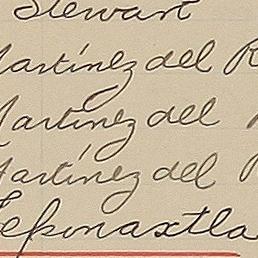 Stewart
Martínez del R
Martínez del
Martínez del
Teponaxtla